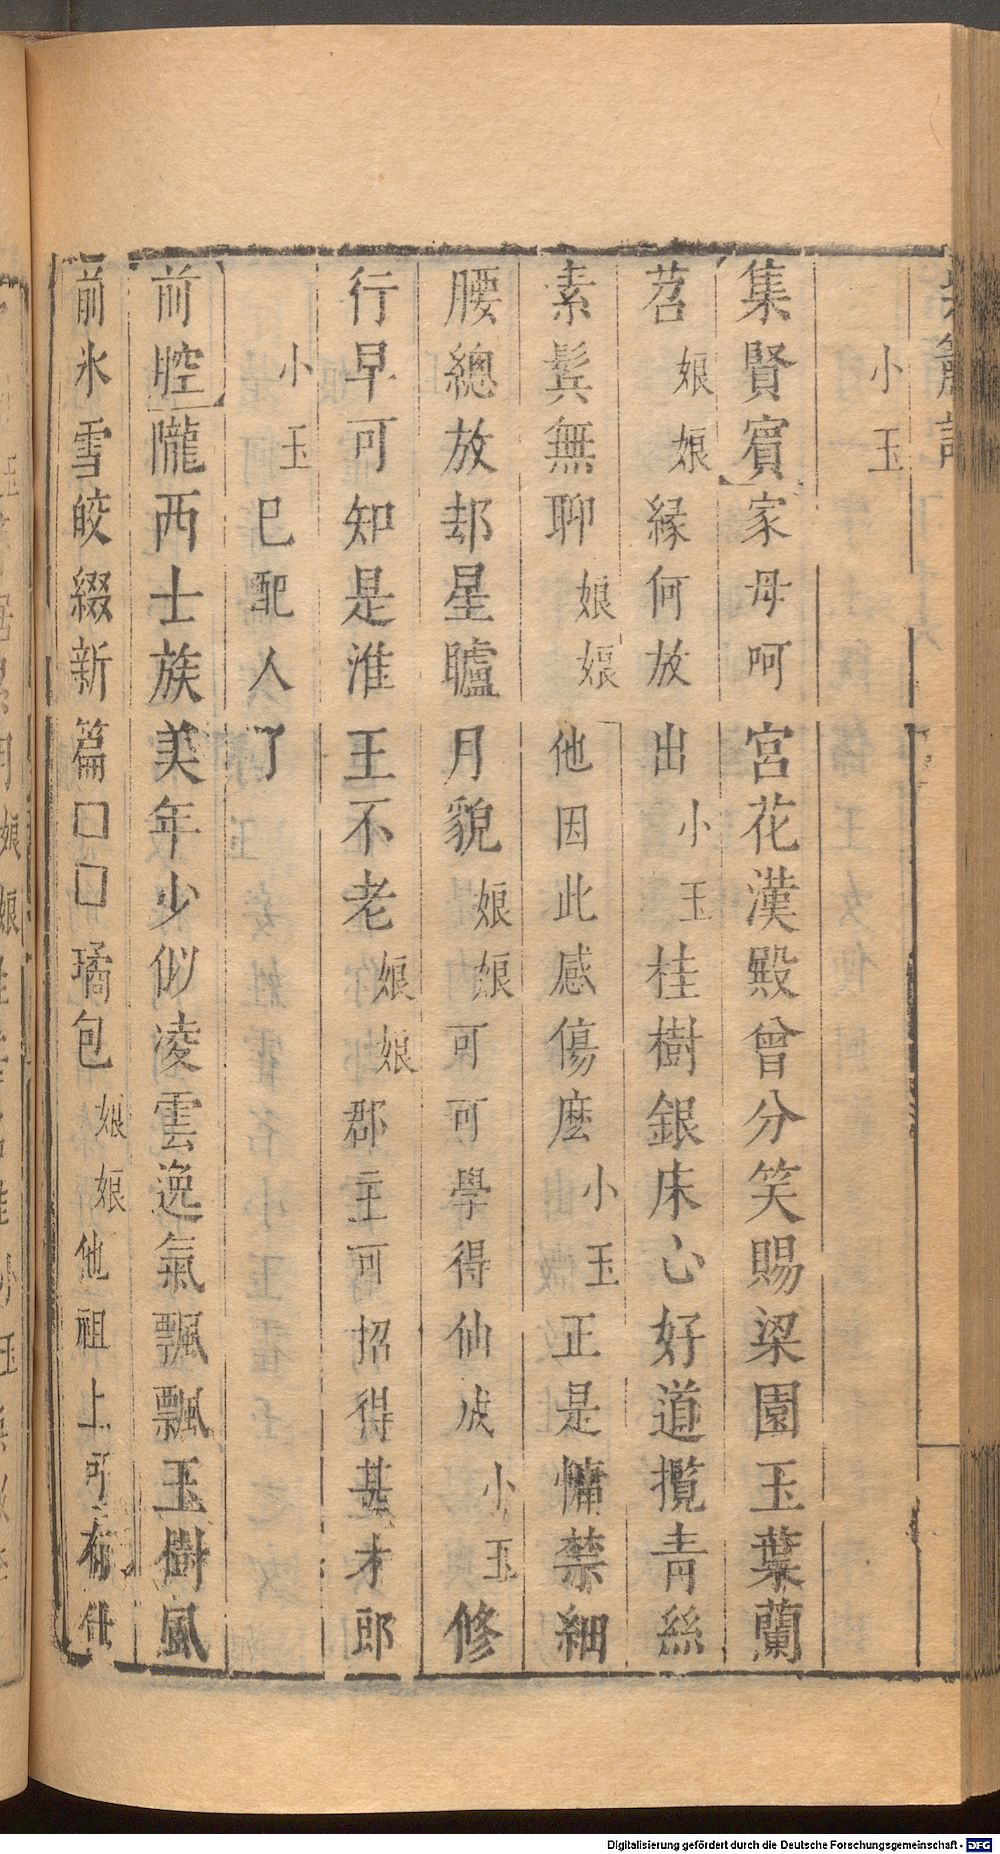 小玉
集賢賓家母呵宮花漢殿曾分笑賜梁園玉葉蘭
苕娘娘緣何放出小玉桂樹銀床心好道攬青絲
素鬂無聊娘娘他因此感傷麽小玉正是慵禁細
腰總放却星矑月貌娘娘可可學得仙成小玉修
行早可知是淮王不老娘娘郡主可招得甚才郎
小玉巳配人了
前腔隴西士族美年少似凌雲逸氣飄飄玉樹風
前氷雪皎綴新篇□□璚包娘娘他祖上可有仕
Digitalisierung gefördert durch die Deutsche Forschungsgemeinschaft - DFG